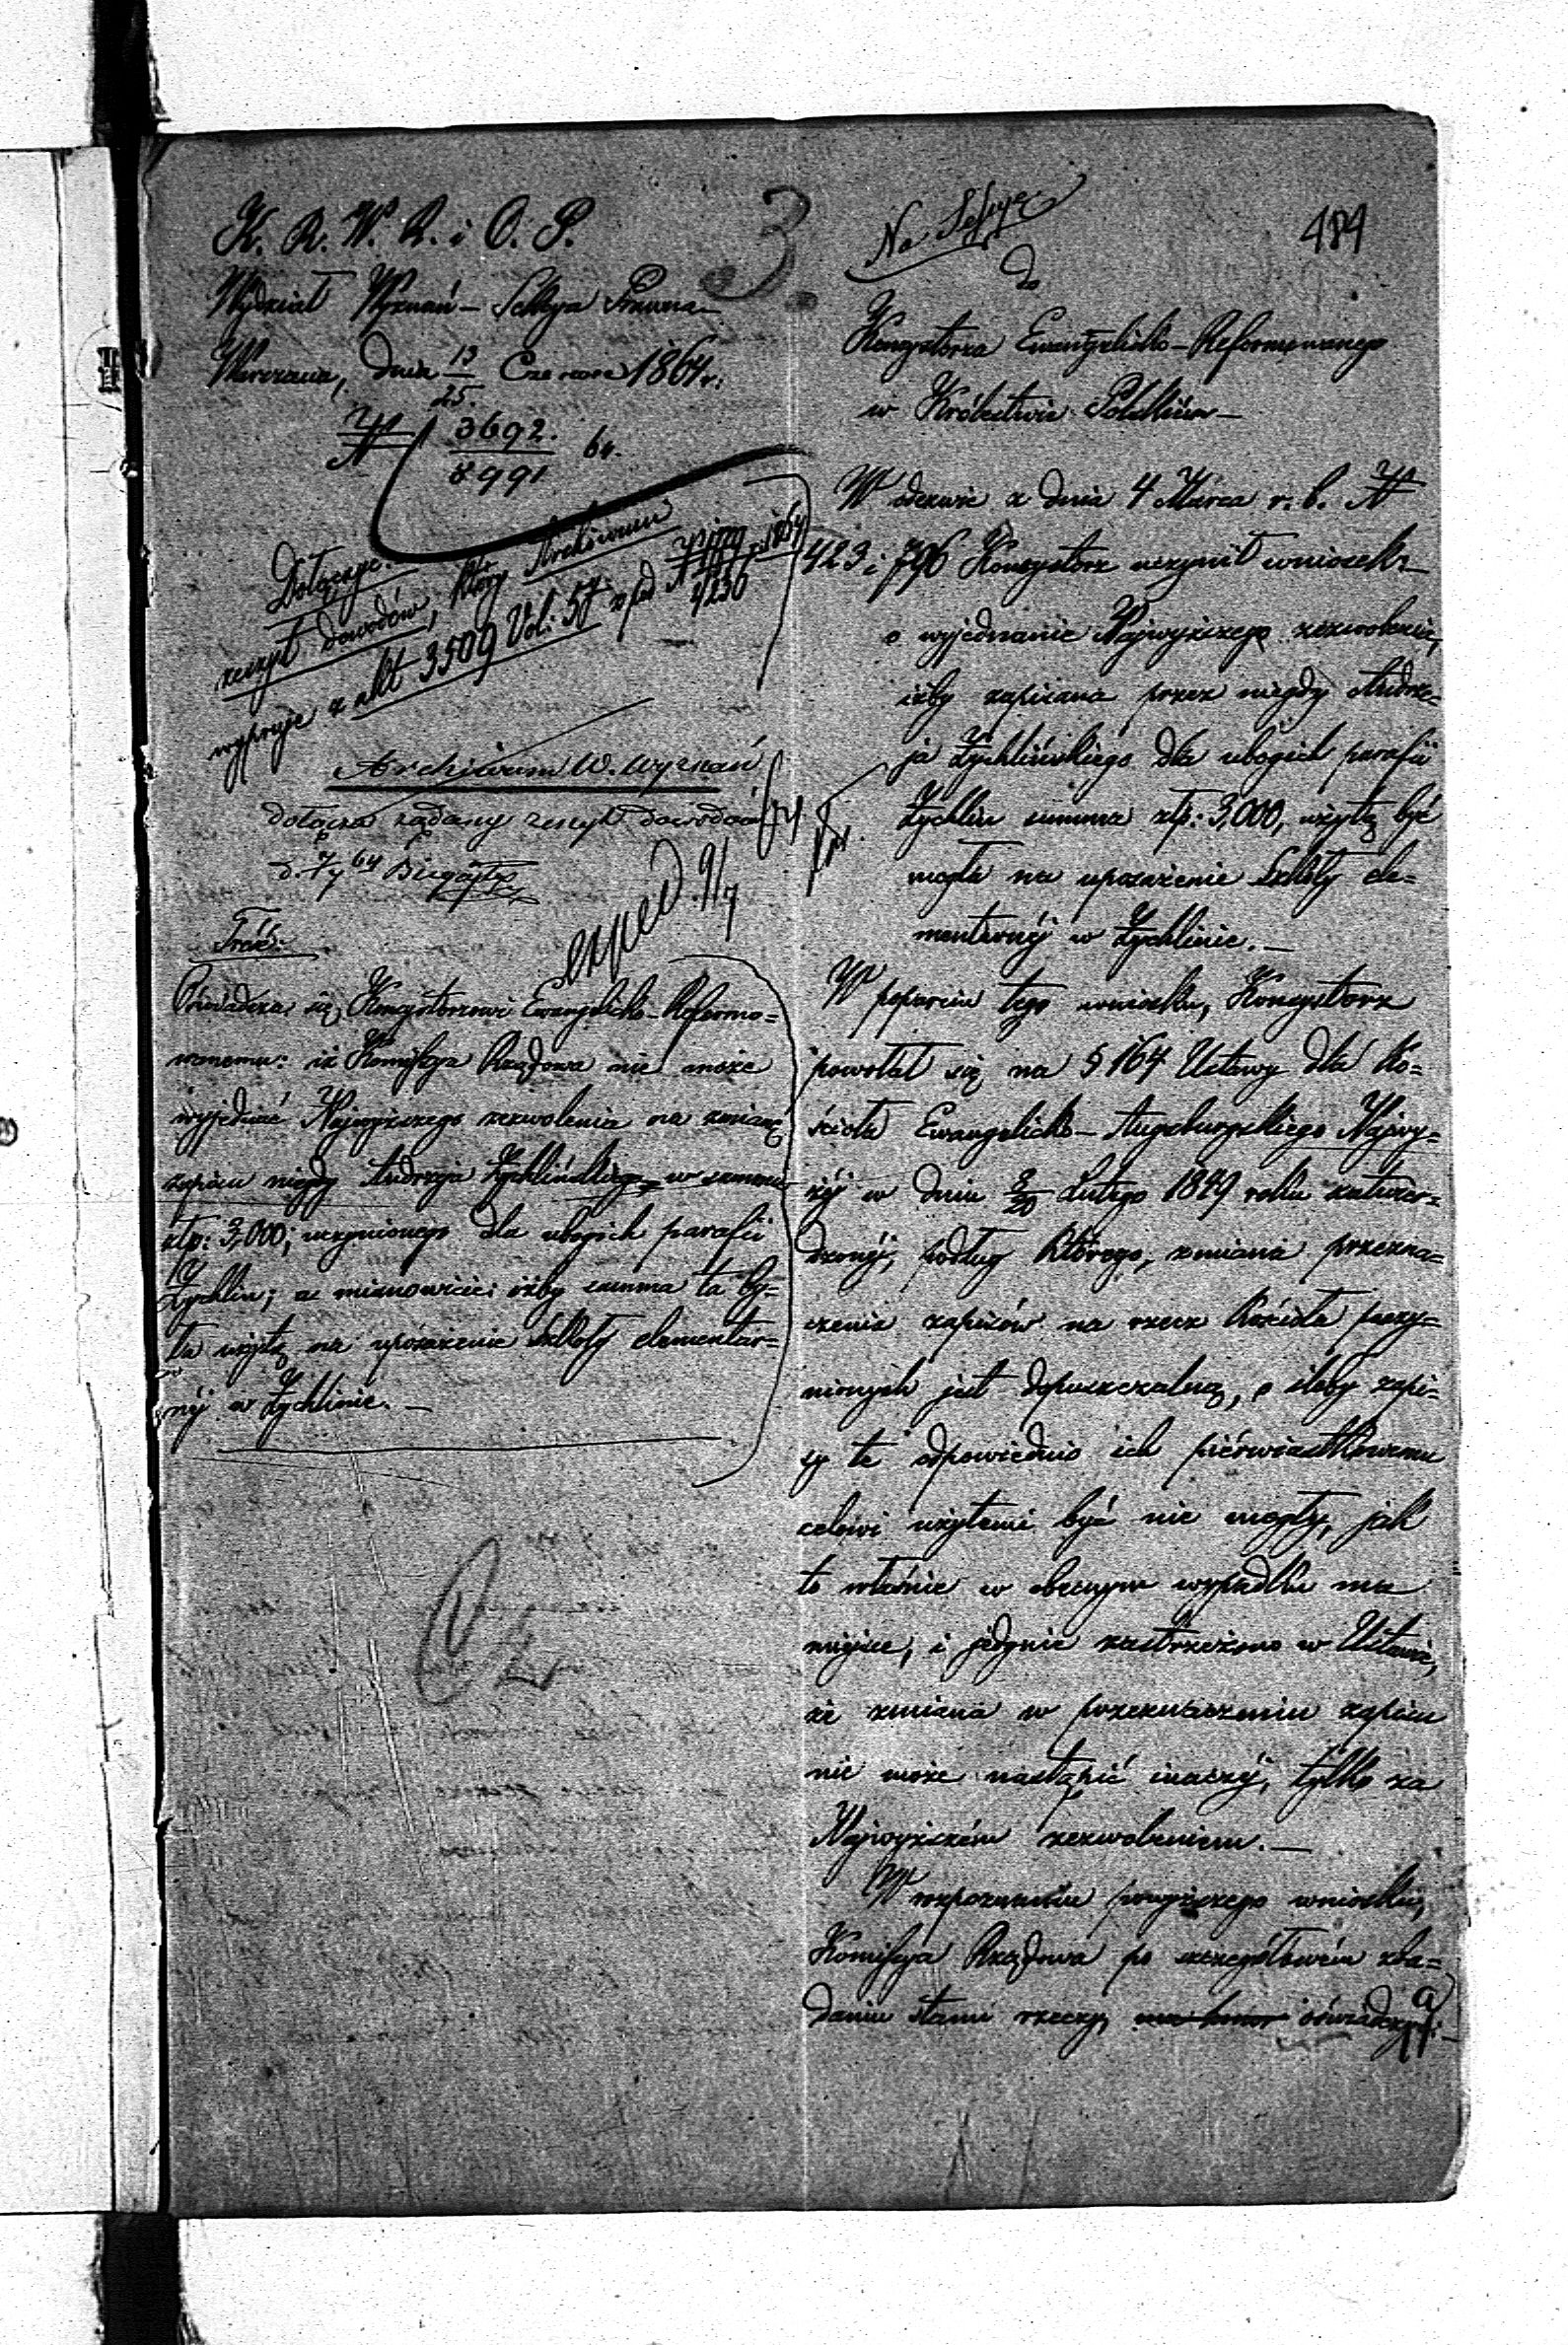 K. R. W. R. i O. P.
Wydział Wyznań – Sekcya Prawna
Warszawa, dnia 13/25 Czerwca 1864 r:
N 3692./8991 64.
Dołączyć
zeszyt dowodów, który Archiwum
wyjmuje z akt 3509 Vol: 57.
Archiwum W. Wyznań
dołącza żądany zeszyt dowodów
exped. 9/7
Treść:
Oświadcza się Konsystorzowi Ewangelicko-Reformo=
wanemu: iż Kommissya Rządowa nie może
wyjednać Najwyższego zezwolenia na zmianę
zapisu niegdy Andrzeja Żychlińskiego w summie
złp: 3,000, uczynionego dla ubogich parafii
Żychlin; a mianowicie: iżby summa ta by=
ła użytą na uposażenie szkoły elementar=
néj w Żychlinie. –
3.
Na Sessyę
484
do
Konsystorza Ewangelicko-Reformowanego
w Królestwie Polskiém –
W odezwie z dnia 4 Marca r. b. N
423 i 796 Konsystorz uczynił wniosek –
o wyjednanie Najwyższego zezwolenia,
iżby zapisana przez niegdy Andrze=
ja Żychlińskiego dla ubogich parafii
Żychlin summa złp: 3,000, użytą być
mogła na uposażenie szkoły ele=
mentarnéj w Żychlinie. –
W poparciu tego wniosku, Konsystorz
powołał się na § 164 Ustawy dla Ko=
ścioła Ewangelicko-Augsburgskiego Najwy=
żéj w dniu 8/20 Lutego 1849 roku zatwier=
dzonéj, podług którego, zmiana przezna=
czenia zapisów na rzecz Kościoła poczy=
nionych jest dopuszczalną, o ileby zapi=
sy te odpowiednio ich pierwiastkowemu
celowi użytemi być nie mogły, jak
to właśnie w obecnym wypadku ma
miejsce, i jedynie zastrzeżono w Ustawie,
że zmiana w przeznaczeniu zapisu
nie może nastąpić inaczéj, tylko za
Najwyższém zezwoleniem. –
W rozpoznaniu powyższego wniosku,
Kommissya Rządowa po szczegółowém zba=
daniu stanu rzeczy, ma honor oświadczyć